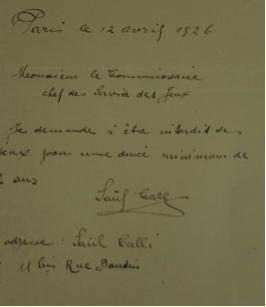 Paris le 12 avril 1926
Monsieur le Commissaire
chef des Service des Jeux
Je demande à être interdit des
jeux pour une durée minimum de
2 ans
Saül
adresse : Saül Calli
11 bis Rue Baudin